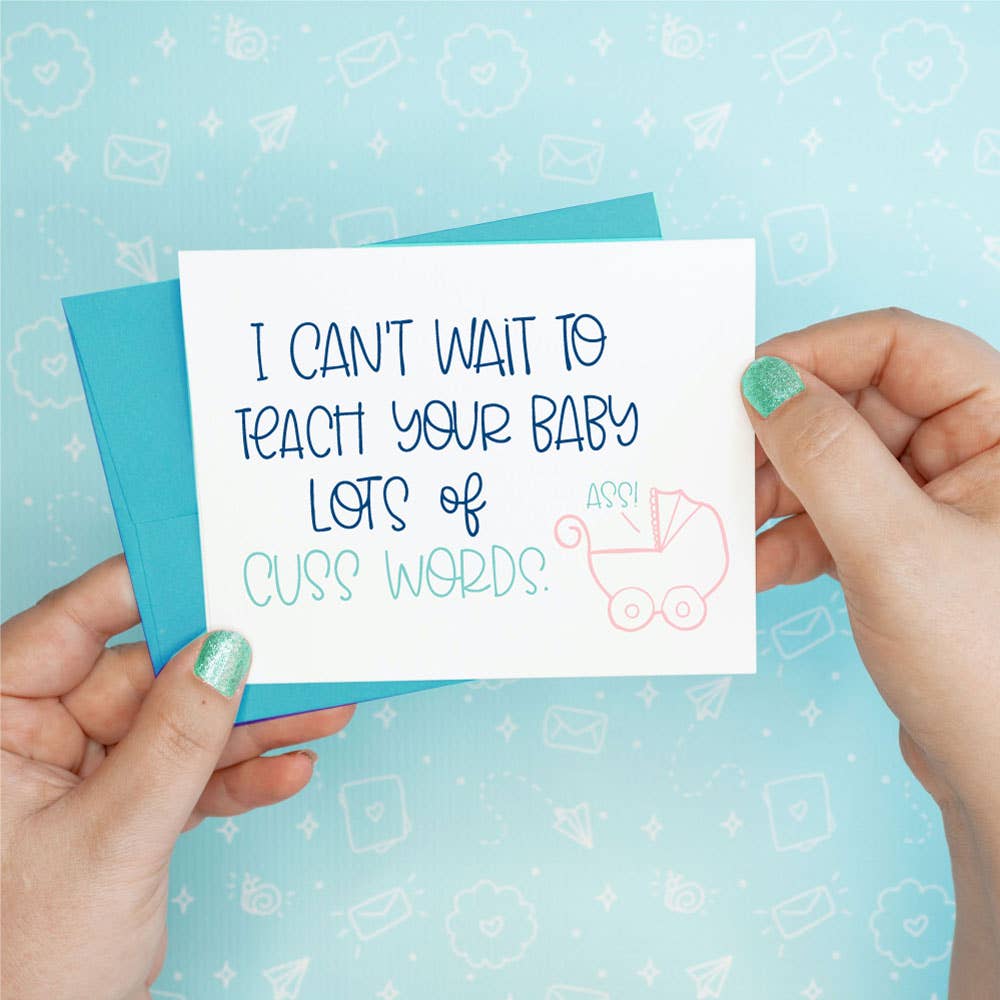 I CAN'T WAIT TO
TEACH YOUR BABY
LOTS OF
CUSS WORDS.
ASS!